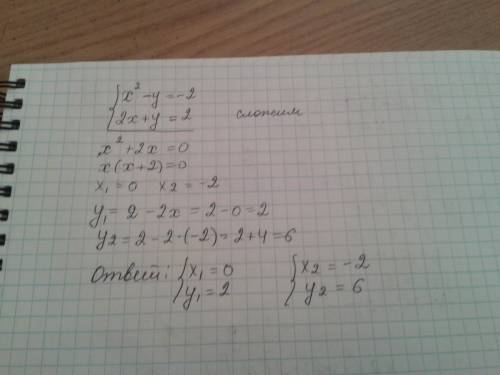 x² - y = -2
2x + y = 2 сложим
x² + 2x = 0
x(x+2) = 0
x₁ = 0 x₂ = -2
y₁ = 2 - 2x = 2 - 0 = 2
y₂ = 2 - 2·(-2) = 2 + 4 = 6
Ответ: { x₁ = 0 { x₂ = -2
y₁ = 2 y₂ = 6